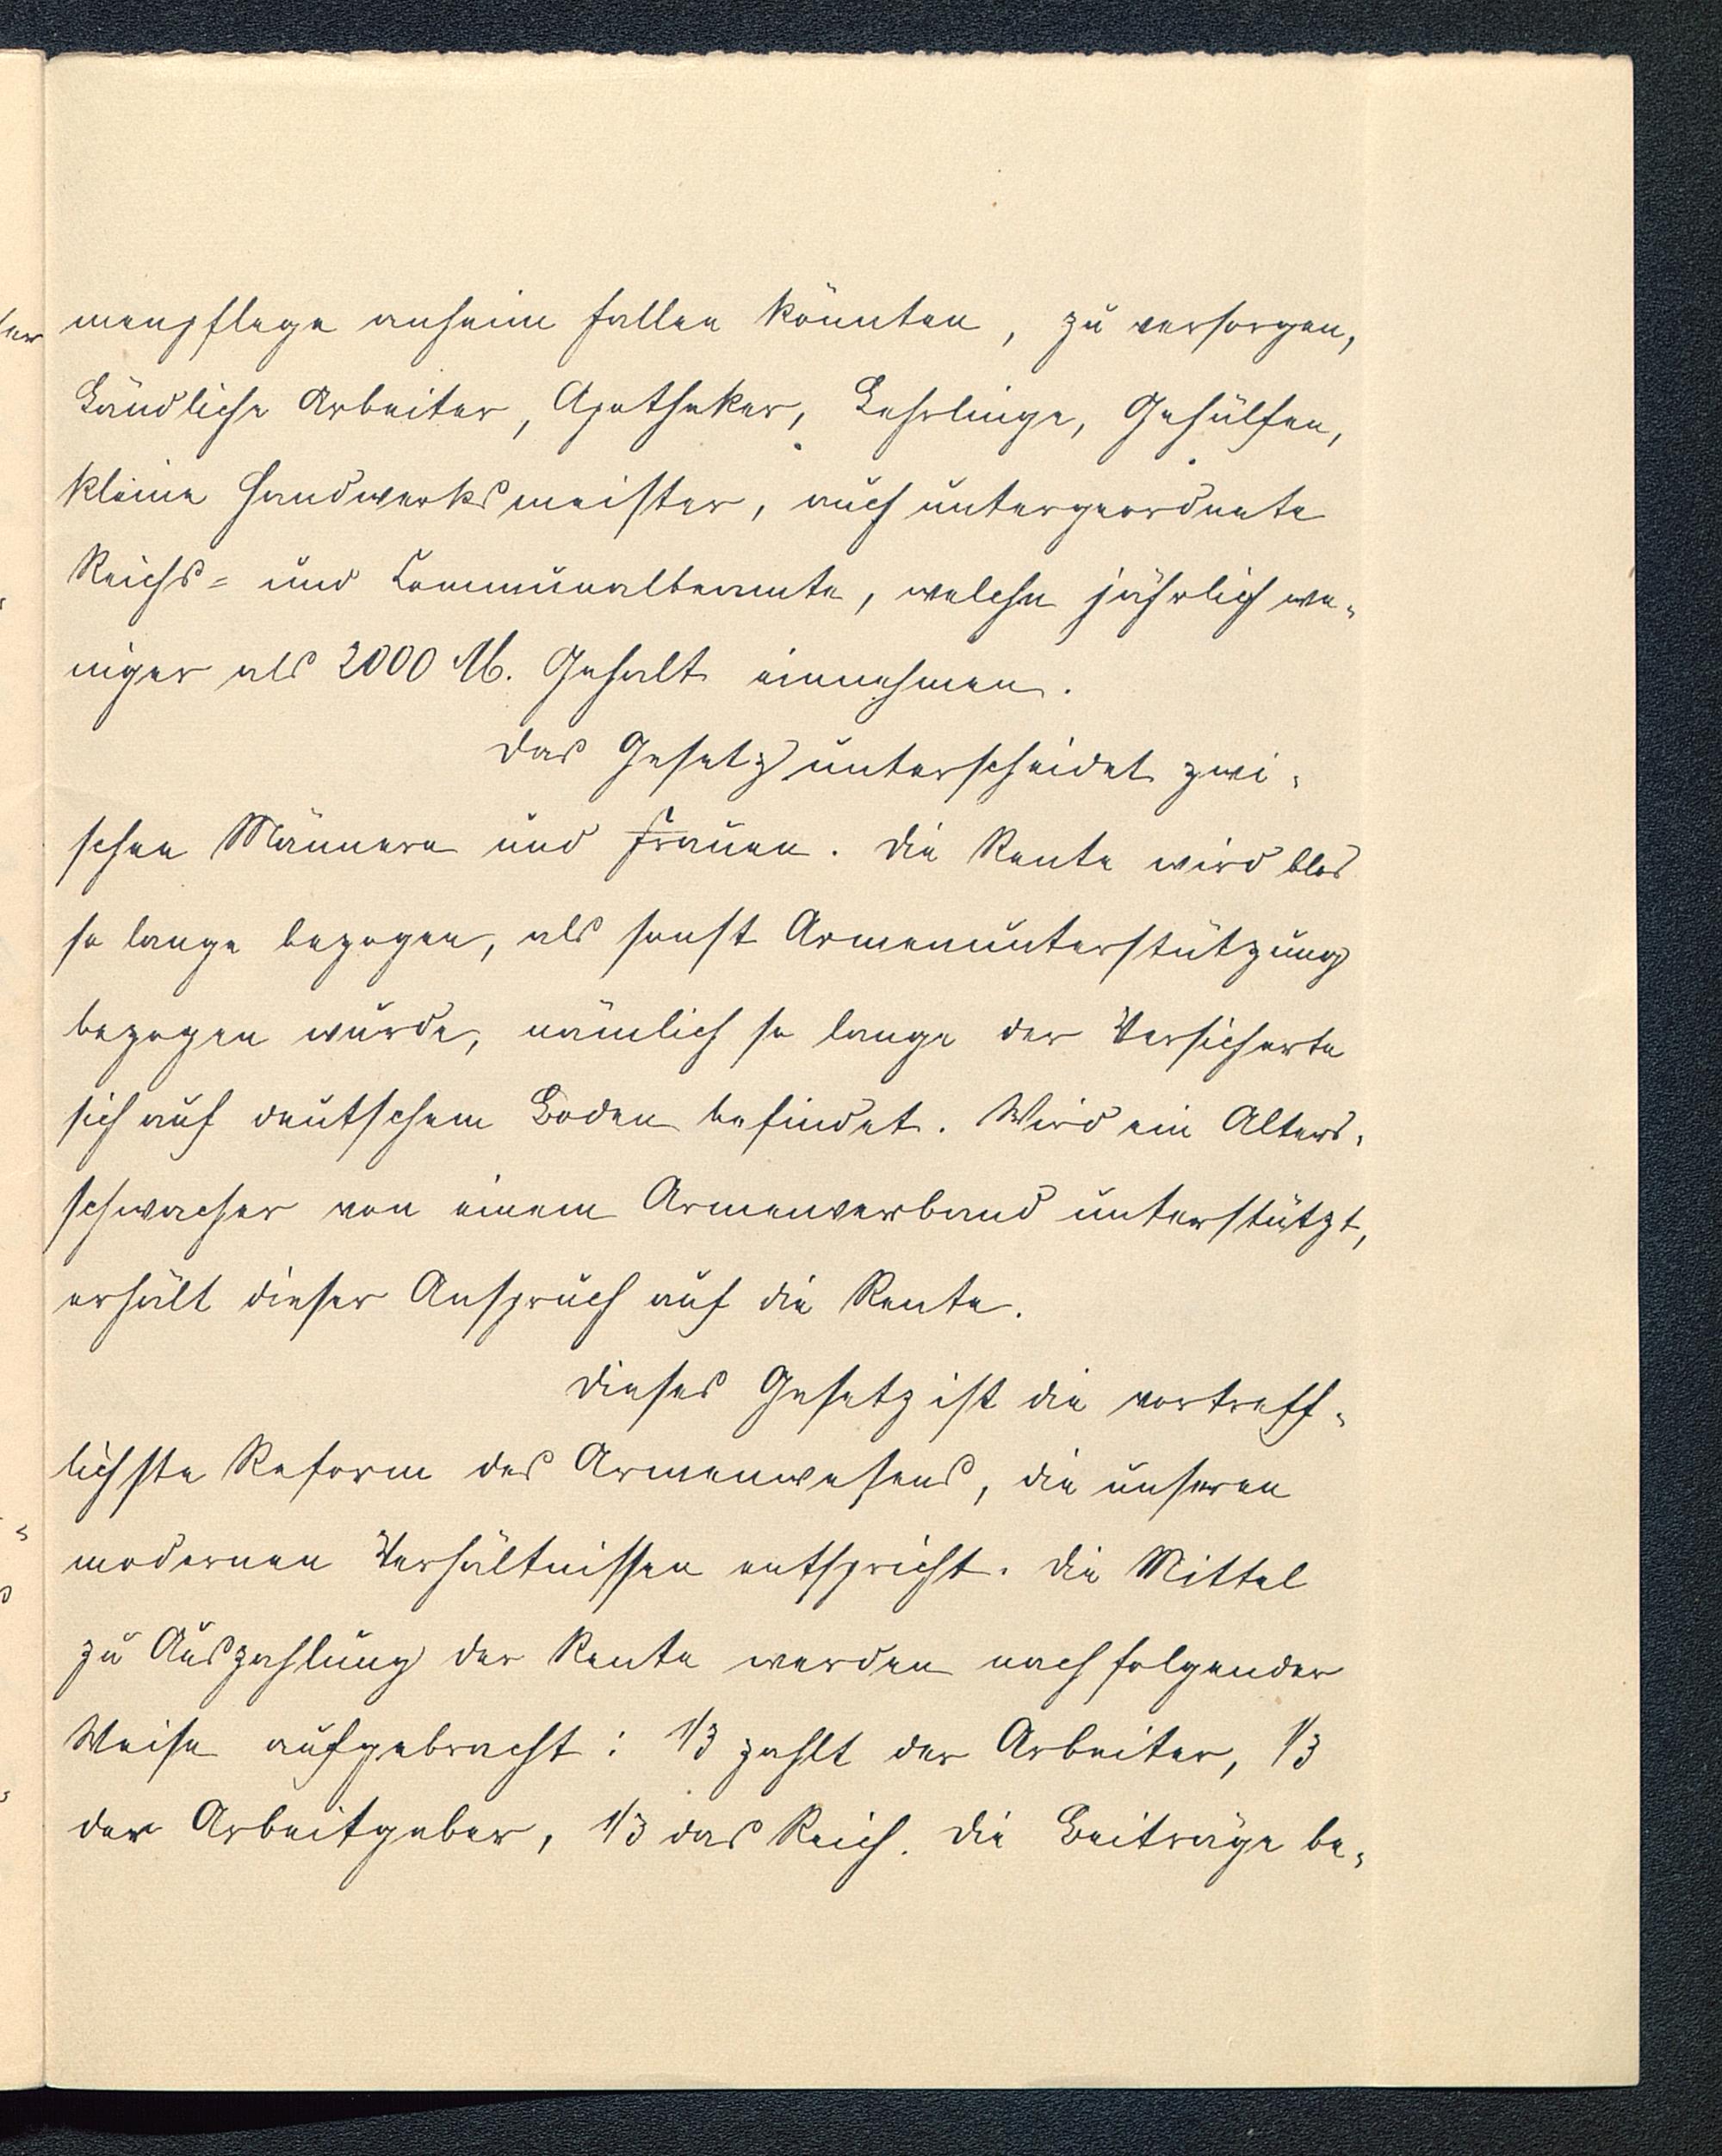 menpflege anheim fallen könnten, zu versorgen,
Ländliche Arbeiter, Apotheker, Lehrlinge, Gehülfen,
kleine Handwerksmeister, auch untergeordnete
Reichs- und Communalbeamte, welche jährlich we-
niger als 2000 M. Gehalt einnehmen.
Das Gesetz unterscheidet zwi-
schen Männern und Frauen. Die Rente wird blos
so lange bezogen, als sonst Armenunterstützung
bezogen würde, nämlich so lange der Versicherte
sich auf deutschem Boden befindet. Wird ein Alters-
schwacher von einem Armenverband unterstützt,
erhält dieser Anspruch auf die Rente.
Dieses Gesetz ist die vortreff-
lichste Reform des Armenwesens, die unseren
modernen Verhältnissen entspricht. Die Mittel
zu Auszahlung der Rente werden nach folgender
Weise aufgebracht: 1/3 zahlt der Arbeiter, 1/3
der Arbeitgeber, 1/3 das Reich. Die Beiträge be-